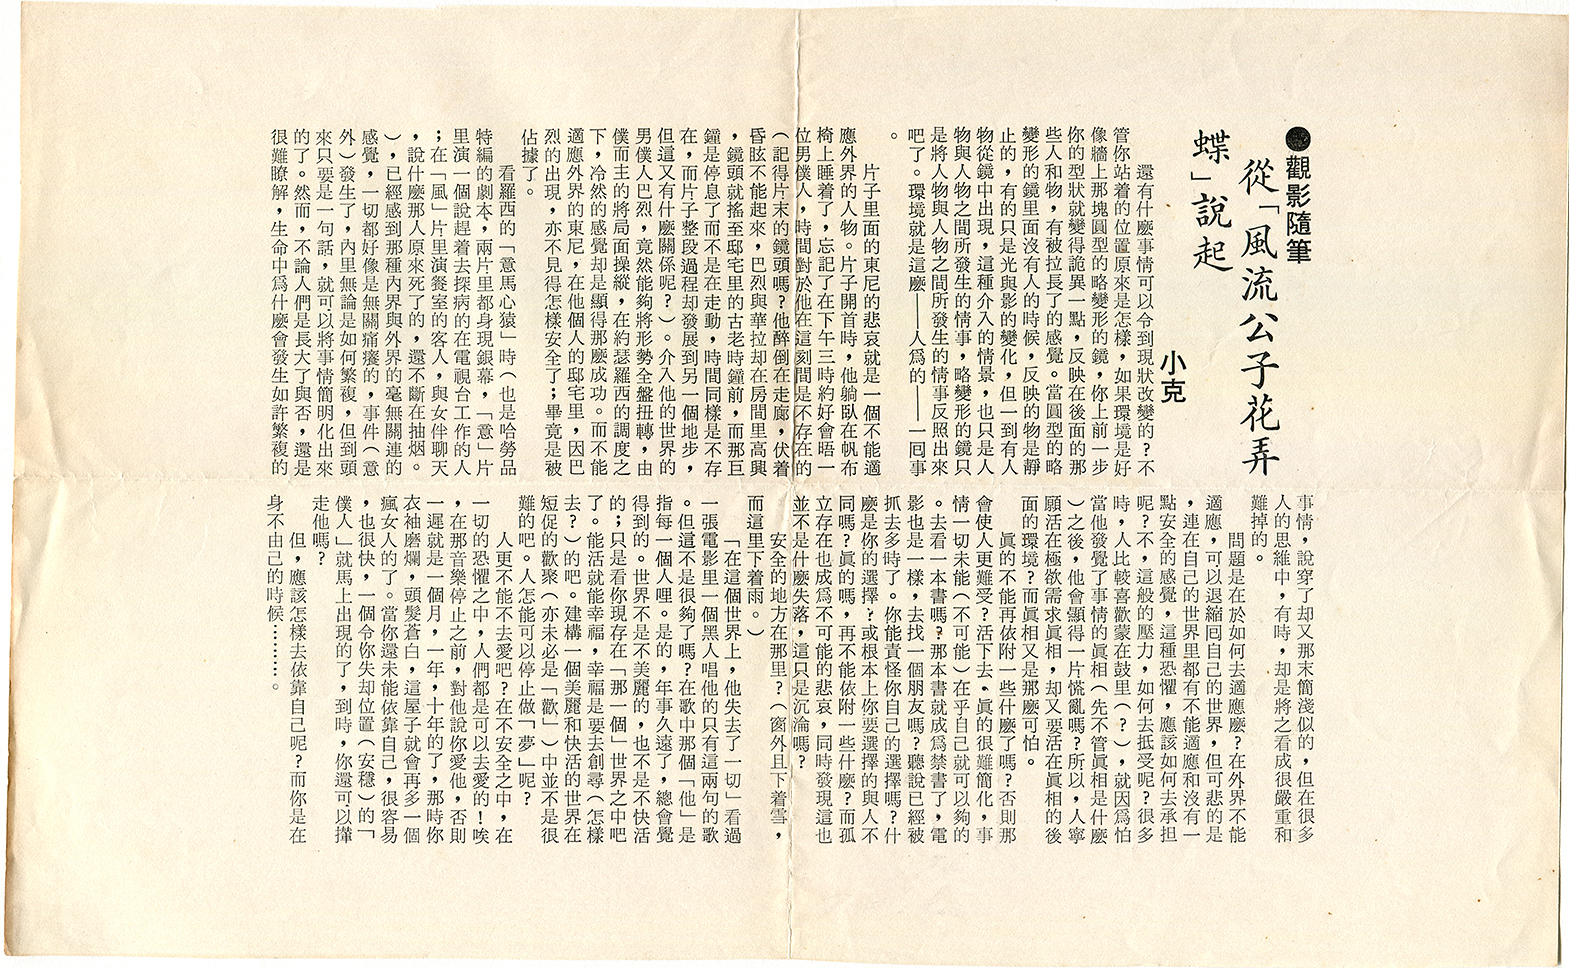 ●觀影隨筆
從「風流公子花弄
蝶」說起
小克
還有什麼事情可以令到現狀改變的？不
管你站着的位置原來是怎樣，如果環境是好
像牆上那塊圓型的略變形的鏡，你上前一步
你的型狀就變得詭異一點，反映在後面的那
些人和物，有被拉長了的感覺。當圓型的略
變形的鏡里面沒有人的時候，反映的物是靜
止的，有的只是光與影的變化，但一到有人
物從鏡中出現，這種介入的情景，也只是人
物與人物之間所發生的情事，略變形的鏡只
是將人物與人物之間所發生的情事反照出來
吧了。環境就是這麼——人爲的——一囘事
。
片子里面的東尼的悲哀就是一個不能適
應外界的人物。片子開首時，他躺臥在帆布
椅上睡着了，忘記了在下午三時約好會晤一
位男僕人，時間對於他在這刻間是不存在的
（記得片末的鏡頭嗎？他醉倒在走廊，伏着
昏眩不能起來，巴烈與華拉却在房間里高興
，鏡頭就搖至邸宅里的古老時鐘前，而那巨
鐘是停息了而不是在走動，時間同樣是不存
在，而片子整段過程却發展到另一個地步，
但這又有什麼關係呢？）。介入他的世界的
男僕人巴烈，竟然能夠將形勢全盤扭轉，由
僕而主的將局面操縱，在約瑟羅西的調度之
下，冷然的感覺却是顯得那麼成功。而不能
適應外界的東尼，在他個人的邸宅里，因巴
烈的出現，亦不見得怎樣安全了；畢竟是被
佔據了。
看羅西的「意馬心猿」時（也是哈勞品
特編的劇本，兩片里都身現銀幕，「意」片
里演一個說趕着去探病的在電視台工作的人
；在「風」片里演餐室的客人，與女伴聊天
，說什麼那人原來死了的，還不斷在抽烟。
），已經感到那種內界與外界的毫無關連的
感覺，一切都好像是無關痛癢的，事件（意
外）發生了，內里無論是如何繁複，但到頭
來只要是一句話，就可以將事情簡明化出來
的了。然而，不論人們是長大了與否，還是
很難瞭解，生命中爲什麼會發生如許繁複的
事情，說穿了却又那末簡淺似的，但在很多
人的思維中，有時，却是將之看成很嚴重和
難掉的。
問題是在於如何去適應麼？在外界不能
適應，可以退縮囘自己的世界，但可悲的是
，連在自己的世界里都有不能適應和沒有一
點安全的感覺，這種恐懼，應該如何去承担
呢？不，這般的壓力，如何去抵受呢？很多
時，人比較喜歡蒙在鼓里（？），就因爲怕
當他發覺了事情的眞相（先不管眞相是什麼
）之後，他會顯得一片慌亂嗎？所以，人寧
願活在極欲需求眞相，却又要活在眞相的後
面的環境？而眞相又是那麼可怕。
眞的不能再依附一些什麼了嗎？否則那
會使人更難受？活下去・眞的很難簡化，事
情一切未能（不可能）在乎自己就可以夠的
。去看一本書嗎？那本書就成爲禁書了，電
影也是一樣，去找一個朋友嗎？聽說已經被
抓去多時了。你能責怪你自己的選擇嗎？什
麼是你的選擇？或根本上你要選擇的與人不
同嗎？眞的嗎，再不能依附一些什麼？而孤
立存在也成爲不可能的悲哀，同時發現這也
並不是什麼失落，這只是沉淪嗎？
安全的地方在那里？（窗外且下着雪，
而這里下着雨。）
「在這個世界上，他失去了一切」看過
一張電影里一個黑人唱他的只有這兩句的歌
。但這不是很夠了嗎？在歌中那個「他」是
指每一個人哩。是的，年事久遠了，總會覺
得到的。世界不是不美麗的，也不是不快活
的；只是看你現存在「那一個」世界之中吧
了。能活就能幸福，幸福是要去創尋（怎樣
去？）的吧。建構一個美麗和快活的世界在
短促的歡聚（亦未必是「歡」）中並不是很
難的吧。人怎能可以停止做「夢」呢？
人更不能不去愛吧？在不安全之中，在
一切的恐懼之中，人們都是可以去愛的！唉
，在那音樂停止之前，對他說你愛他，否則
一遲就是一個月，一年，十年的了，那時你
衣袖磨爛，頭髮蒼白，這屋子就會再多一個
瘋女人的了。當你還未能依靠自己，很容易
，也很快，一個令你失却位置（安穩）的「
僕人」就馬上出現的了，到時，你還可以攆
走他嗎？
但，應該怎樣去依靠自己呢？而你是在
身不由己的時候………。